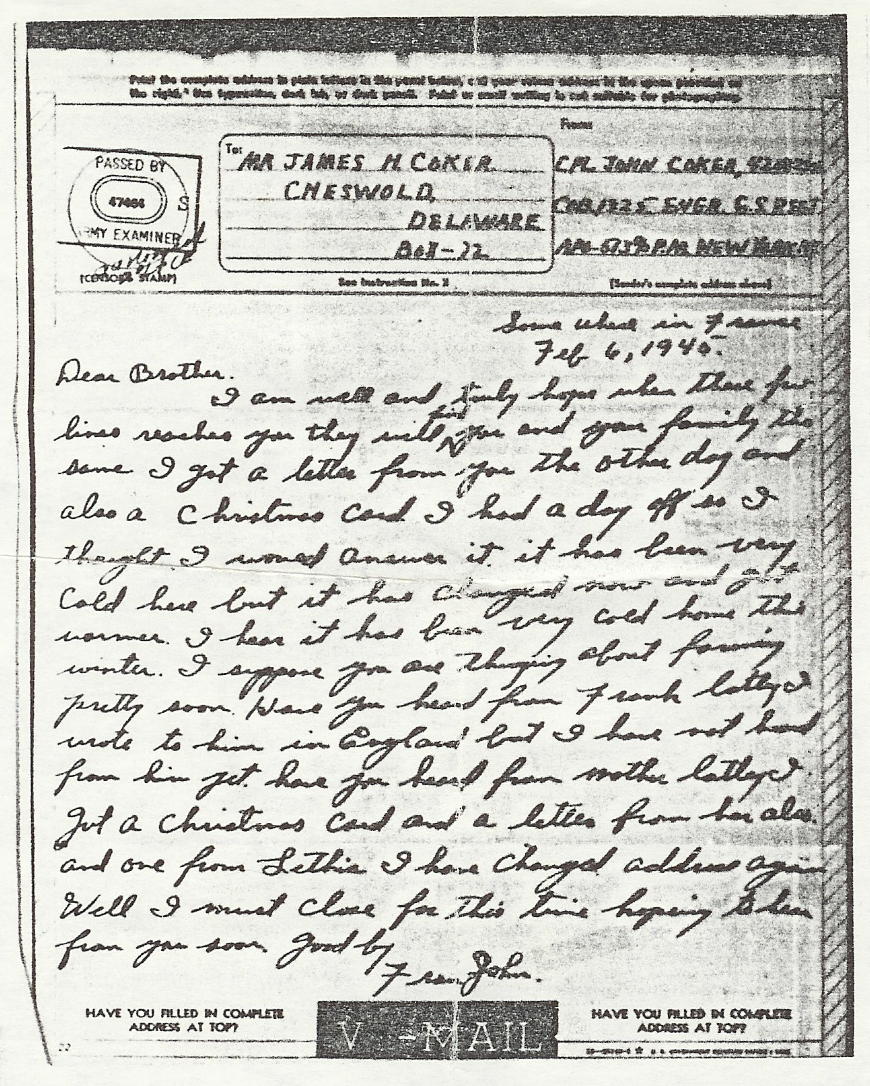 Print the complete address in plain letters in the panel below, and your return address in the space provided on
the right. Use typewriter, dark ink, or dark pencil. Faint or small writing is not suitable for photographing.
From:
To:
PASSED BY
47464
S
ARMY EXAMINER
(CENSOR'S STAMP)
MR JAMES H COKER
CHESWOLD,
DELAWARE
BOX-72
See Instruction No. 2
CPL JOHN COKER,
CO B, 1325 ENGR. G.S REGT
P.M. NEW YORK NY
(Sender's complete address above)
Some where in France
Feb 6, 1945.
Dear Brother.
I am well and truly hope when these few
lines reaches you they will find you and your family the
same I got a letter from you the other day and
also a Christmas card I had a day off so I
thought I would answer it. it has been very
cold here but it has changed now and got
warmer. I hear it has been very cold home this
winter. I suppose you are thinging about farming
pretty soon. Have you heard from Frank latley I
wrote to him in England but I have not heard
from him yet. have you heard from mother latley I
got a Christmas card and a letter from her also.
and one from Lethia I have changed address again
Well I must close for this time hoping to hear
from you soon. Good by
From John.
HAVE YOU FILLED IN COMPLETE
ADDRESS AT TOP?
V-MAIL
HAVE YOU FILLED IN COMPLETE
ADDRESS AT TOP?